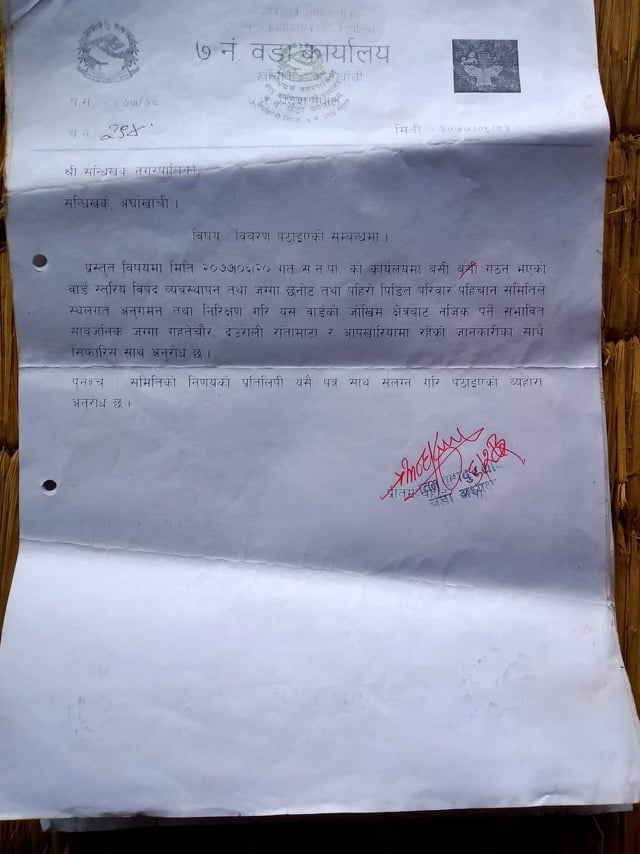 ७ नं. वडा कार्यालय
प.सं. - ०७७/७८
च.नं.
मिती - २०७७/०६/२२
श्री सन्धिखर्क नगरपालिका,
सन्धिखर्क, अर्घाखाँची ।
विषय : विवरण पठाइएको सम्बन्धमा ।
प्रस्तुत विषयमा मिति २०७७/०६/२० गते स न पा को कार्यलयमा बसी गठन भएको
वार्ड स्तरिय विपद व्यवस्थापन तथा जग्गा छनोट तथा पहिरो पिडित परिवार पहिचान समितिले
स्थलगत अनुगमन तथा निरिक्षण गरि यस वार्डको जोखिम क्षेत्रबाट नजिक पर्ने संभावित
सार्वजनिक जग्गा गहतेचौर, देउराली रातामाटा र आपखोरियामा रहेको जानकारीका साथै
सिफारिस साथ अनुरोध छ ।
पुनश्च : समितिको निर्णयको प्रतिलिपी यसै पत्र साथ संलग्न गरि पठाइएको व्यहोरा
अनुरोध छ ।
वडा अध्यक्ष